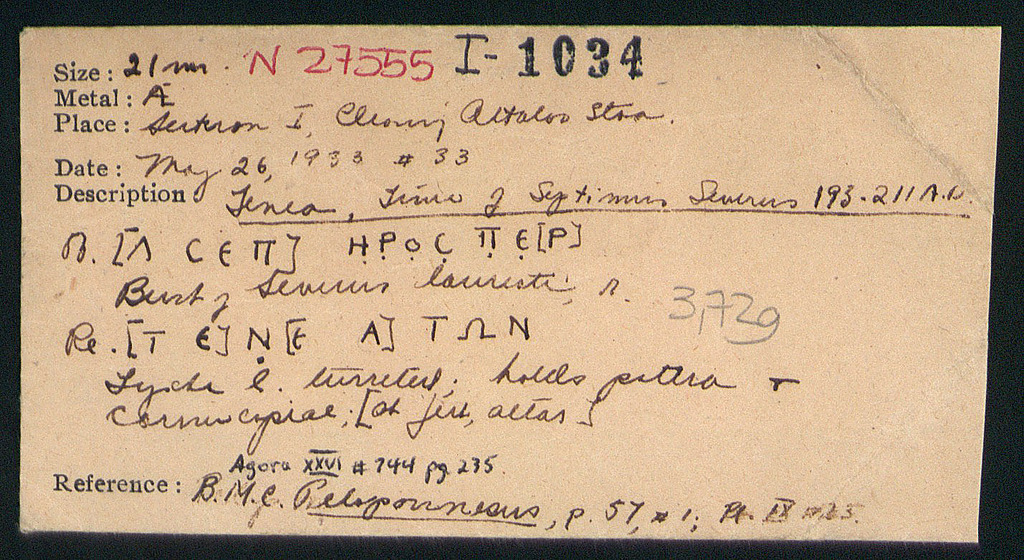 Size: 21 mm. N 27555 I-1034
Metal: Æ
Place: Section I, Cleaning Attalos Stoa.
Date: May 26, 1933 # 33
Description Tenea, Time of Septimius Severus 193-211 A.D.
[Λ CЄΠ] ΗΡΟC ΠЄ[Ρ]
Bust of Severus laureate, r.
3,72g
Re. [T Є] N [Є A] T Ω N
Tyche l. turreted; holds patera +
Cornucopiae, [at feet, altar]
Agora XXVI # 744 pg 235
Reference: B.M.C. Peloponnesus, p. 57, # 1; Pl. IX #23.